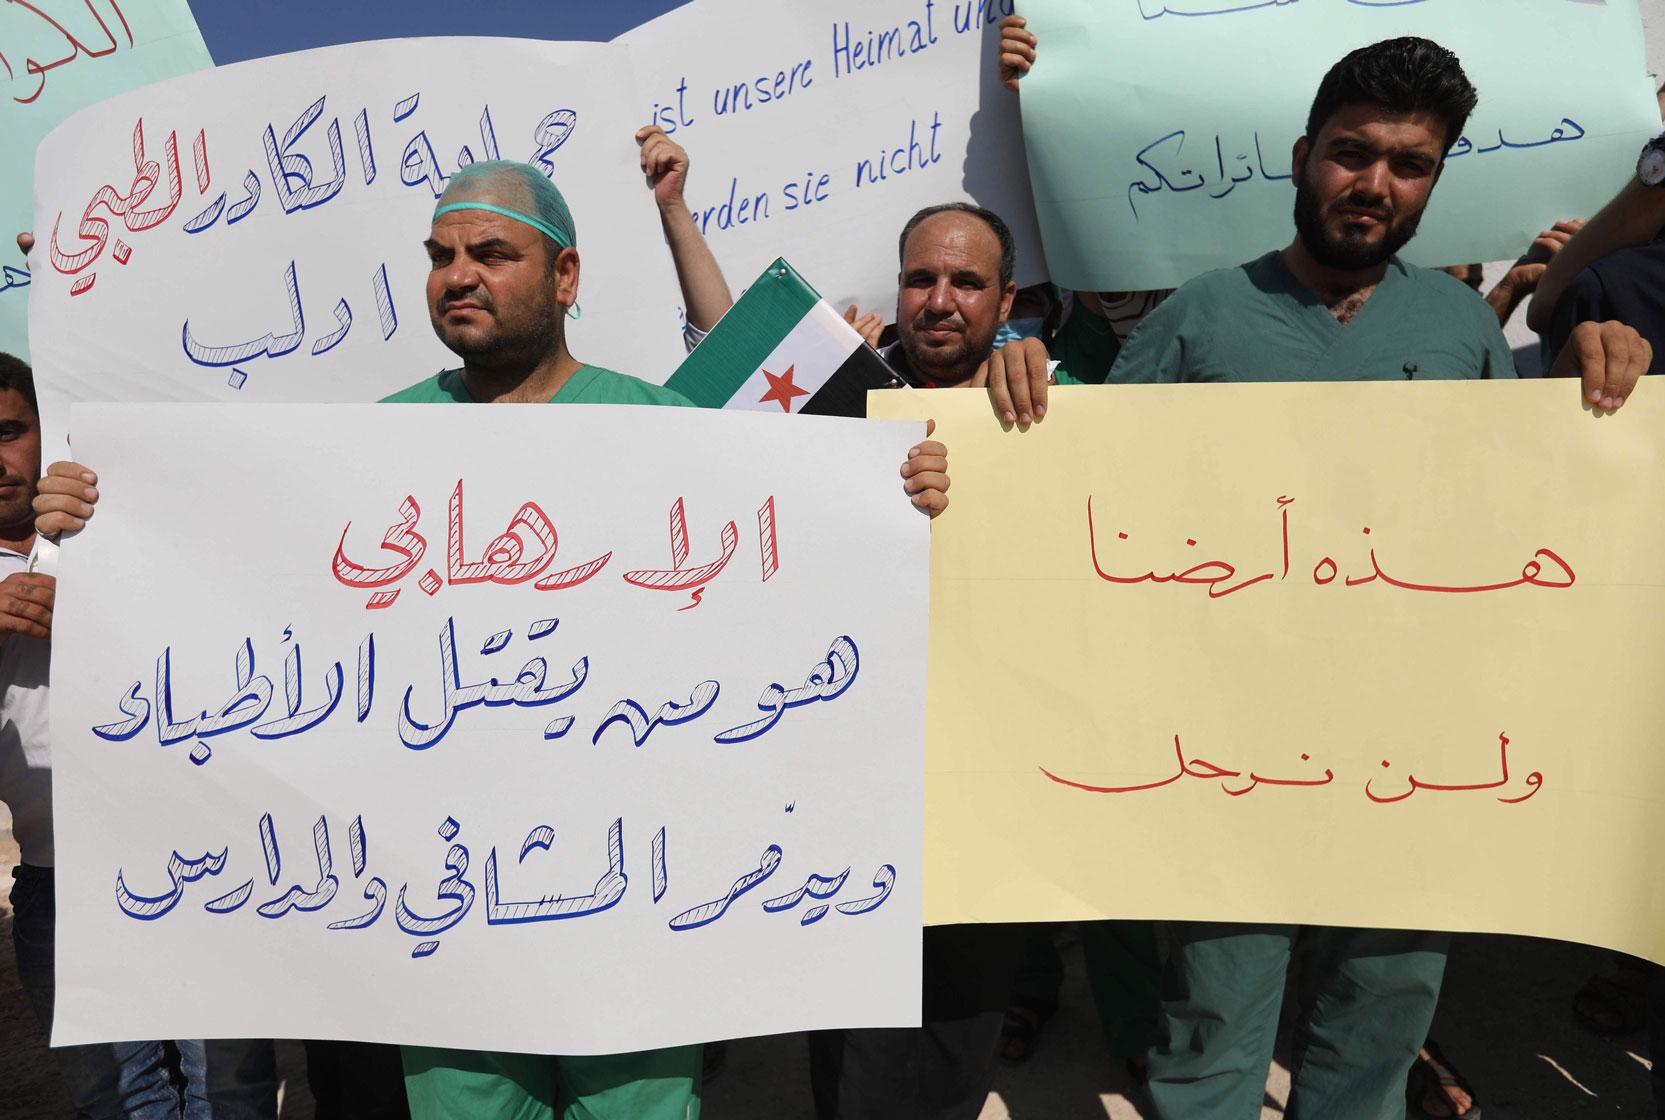 الكوا
حماية الكادر الطبي
ادلب
ist unsere Heimat und
erden sie nicht
الإرهابي
هو من يقتل الأطباء
ويدمّر المشافي والمدارس
هذه أرضنا
ولن نرحل